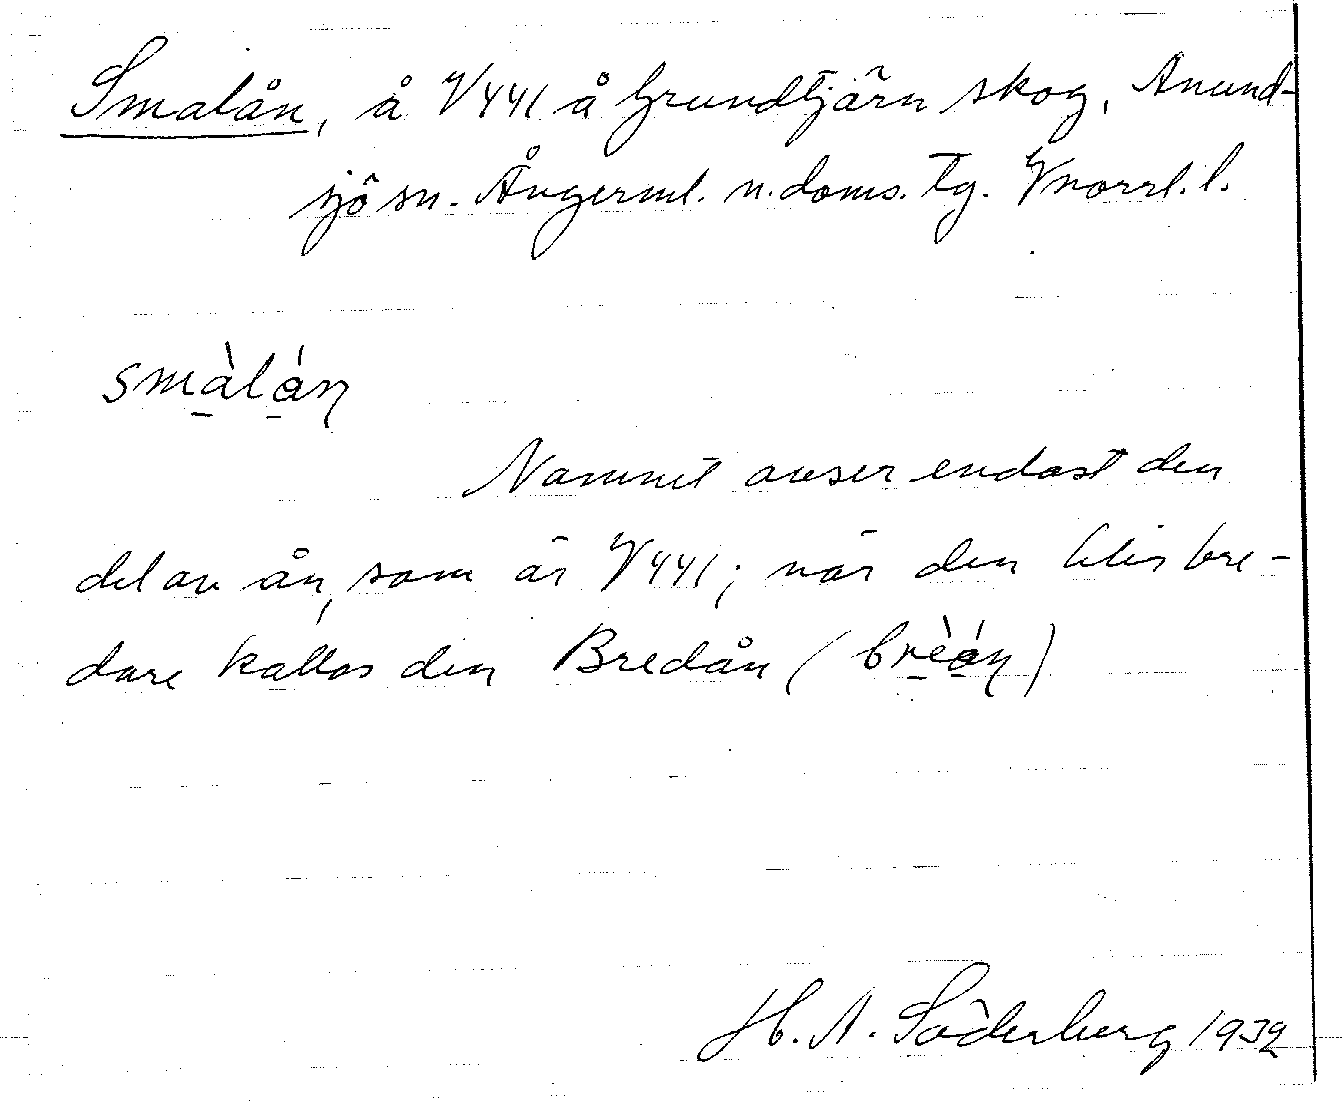 Smalån, å V441 å Grundtjärn skog, Anund-
sjö sn. Ångerml. n. doms. tg. Vnorrl. l.
smàlán
Namnet avser endast den
del av ån, som är V441; när den blir bre-
dare kallas den Bredån (brèán)
H. A. Söderberg 1932